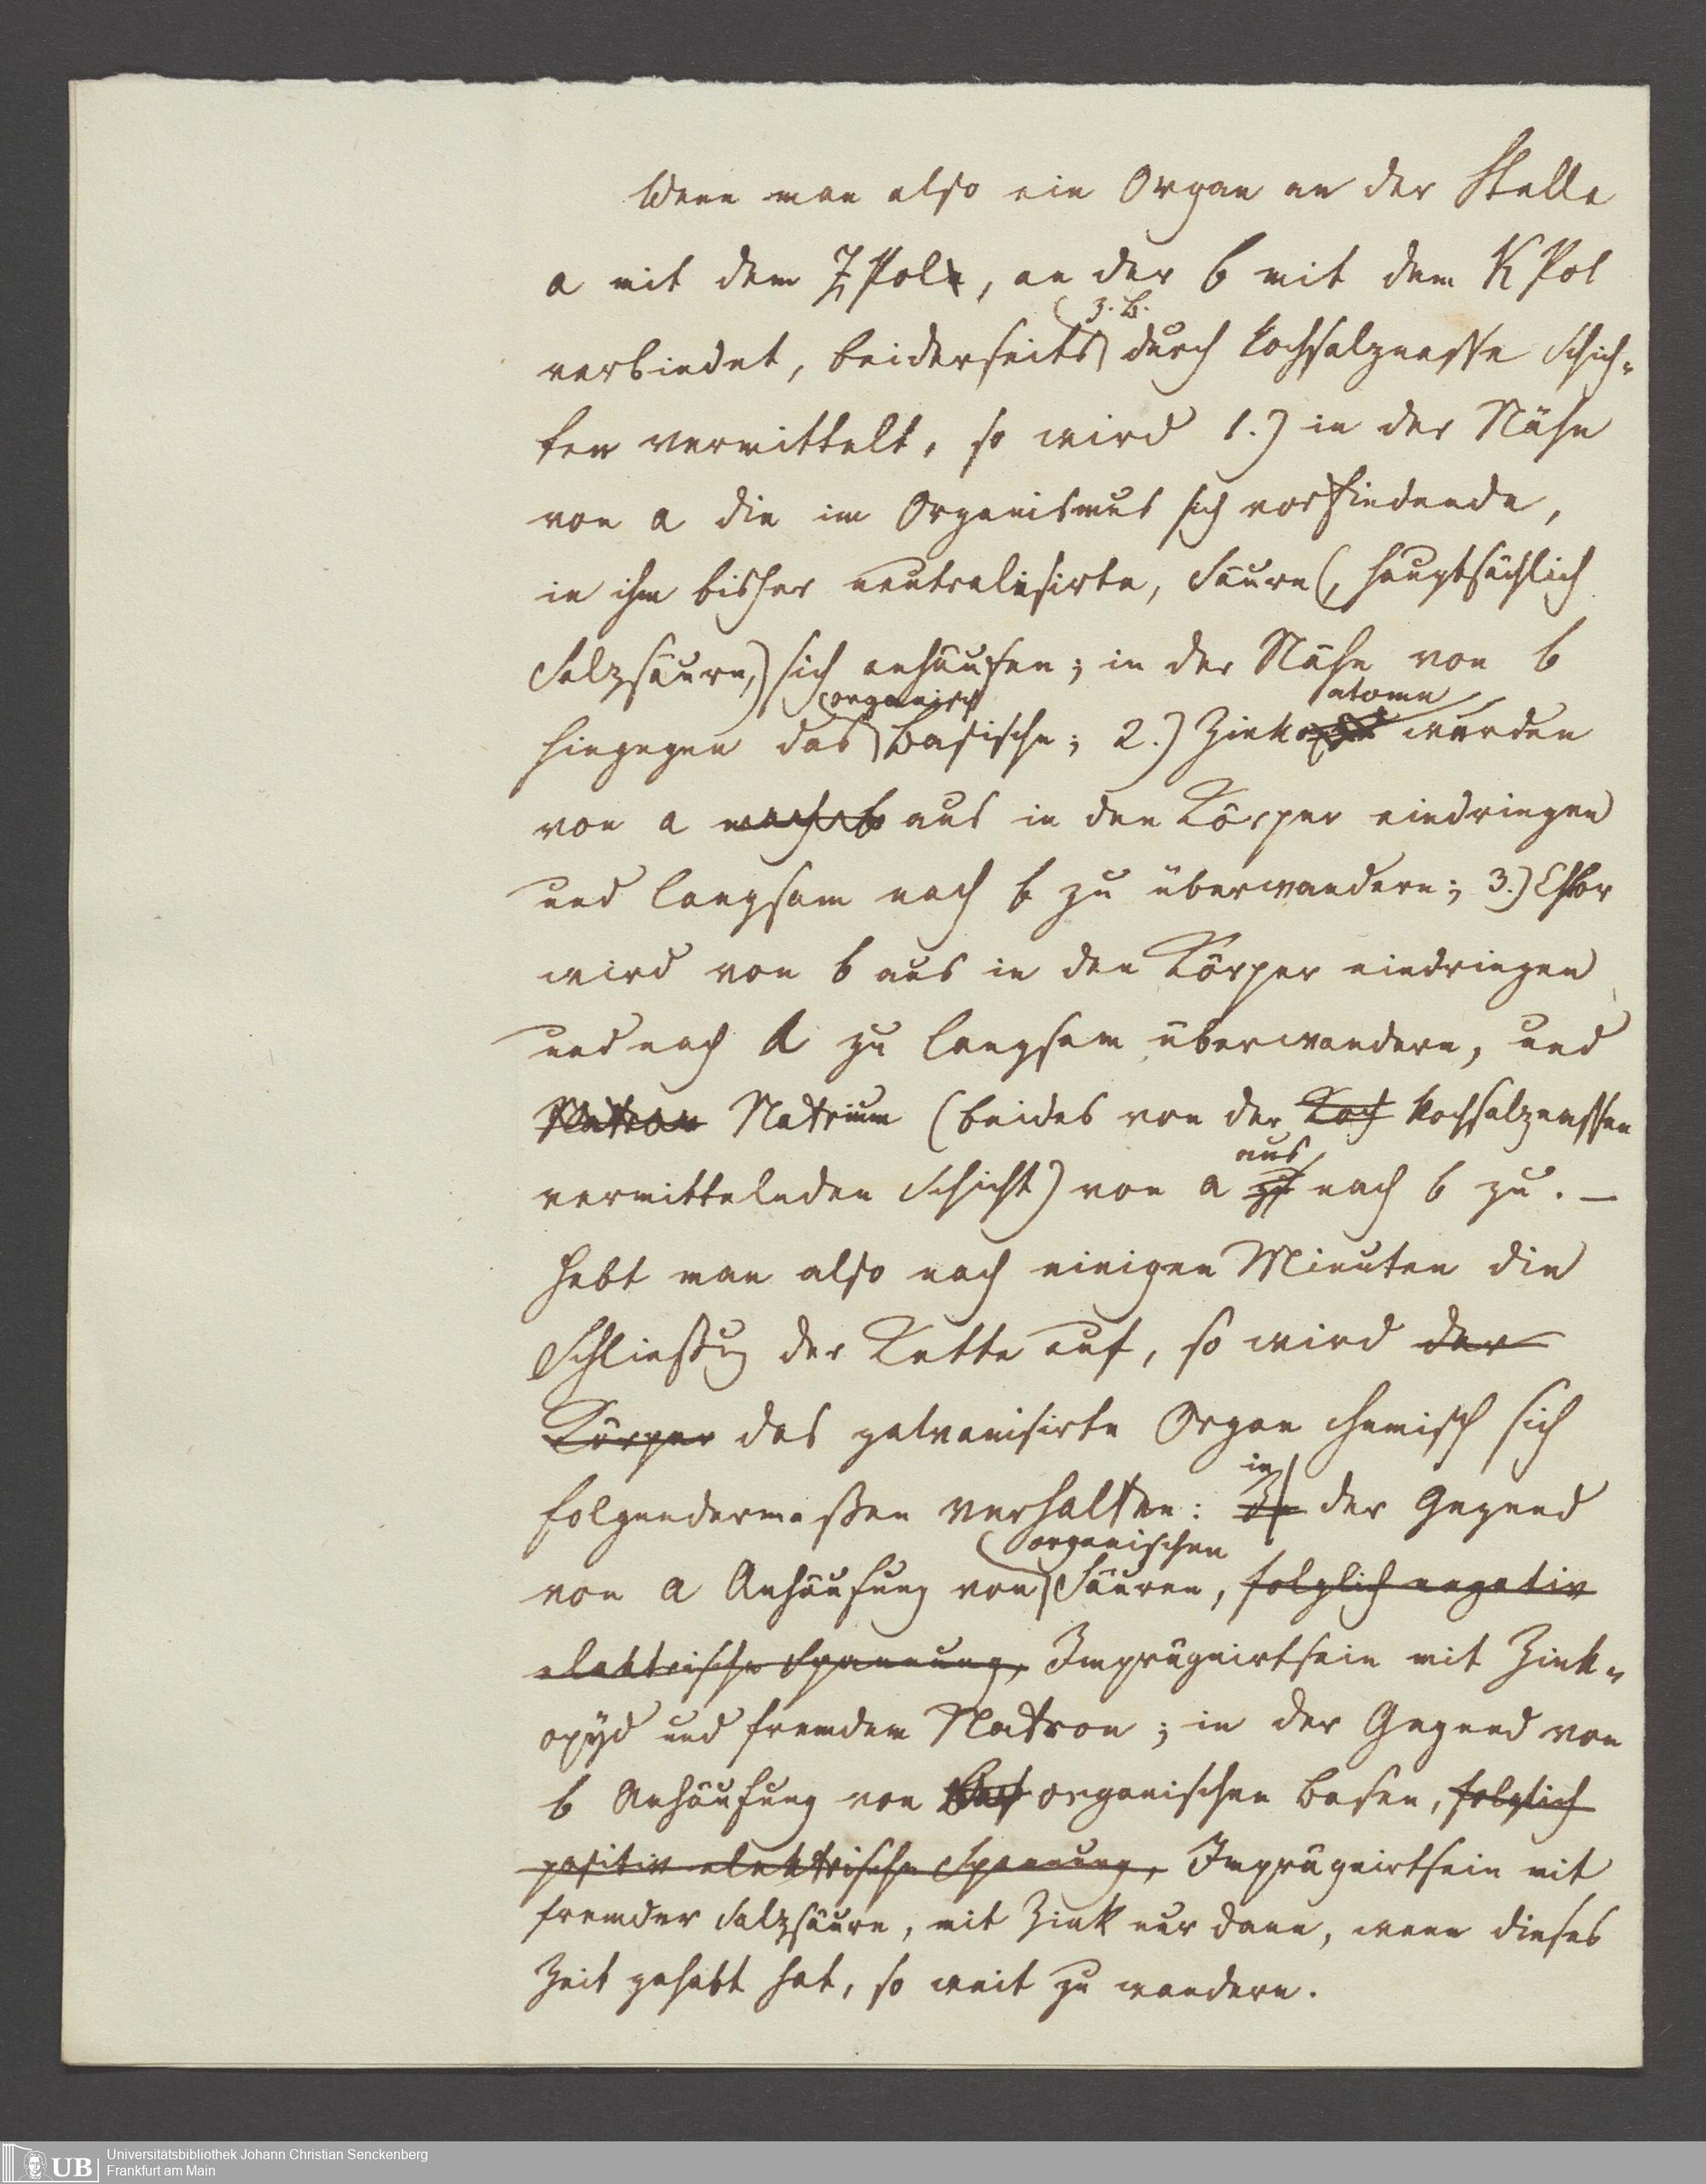 Wenn man also ein Organ an der Stelle
a mit dem Z Pole, an der b mit dem K Pol
z. B.
verbindet, beiderseits durch kochsalznasse Schich-
ten vermittelt, so wird 1.) in der Nähe
von a die im Organismus sich vorfindende,
in ihm bisher neutralisirte, Säure (, hauptsächlich
Salzsäure,) sich anhäufen; in der Nähe von b
organisch atome
hingegen das Basische; 2.) Zinkoxyd werden
von a nach b aus in den Körper eindringen
und langsam nach b zu überwandern; 3.) Chlor
wird von b aus in den Körper eindringen
und nach a zu langsam überwandern, und
Natron Natrium (beides von der Koch kochsalznassen
aus
vermittelnden Schicht) von a zu nach b zu. —
Hebt man also nach einigen Minuten die
Schließung der Kette auf, so wird der
Körper das galvanisirte Organ chemisch sich
in
folgendermaßen verhalten: In der Gegend
organischen
von a Anhäufung von Säuren, folglich negativ
elektrische Spannung, Imprägnirtsein mit Zink-
oxyd und fremdem Natron; in der Gegend von
b Anhäufung von Bas organischen Basen, folglich
positiv elektrische Spannung, Imprägnirtsein mit
fremder Salzsäure, mit Zink nur dann, wenn dieses
Zeit gehabt hat, so weit zu wandern.
UB
Universitätsbibliothek Johann Christian Senckenberg
Frankfurt am Main